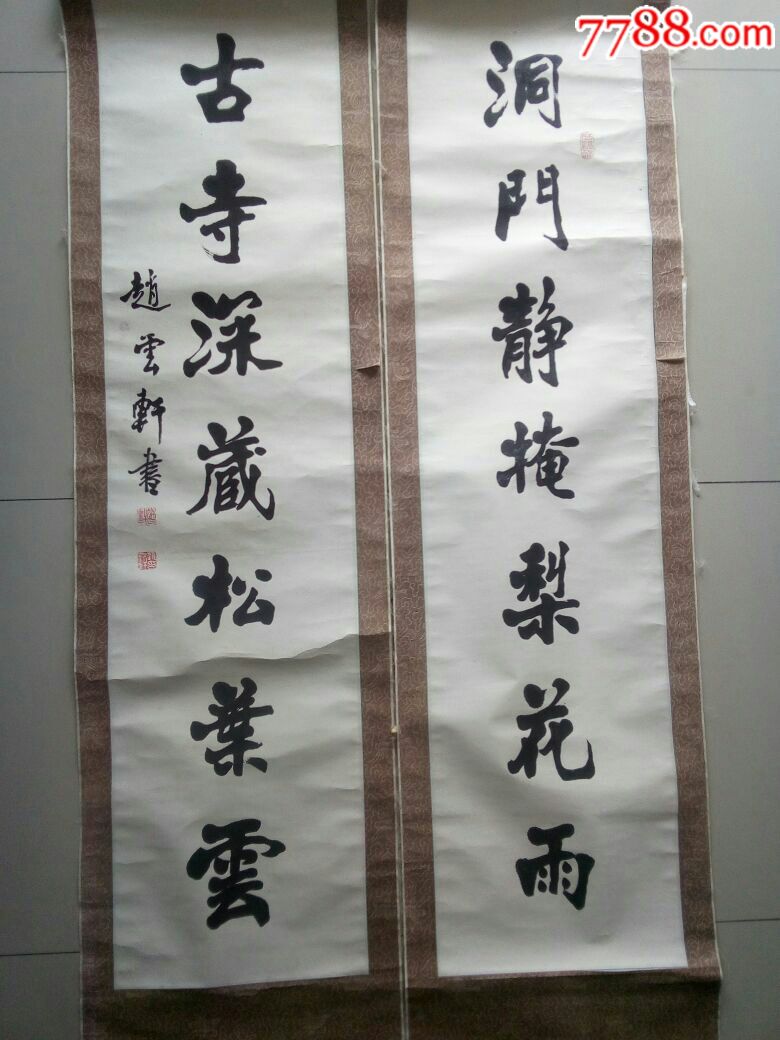 7788.com
洞門静掩梨花雨
古寺深蔵松葉雲
趙雲軒書